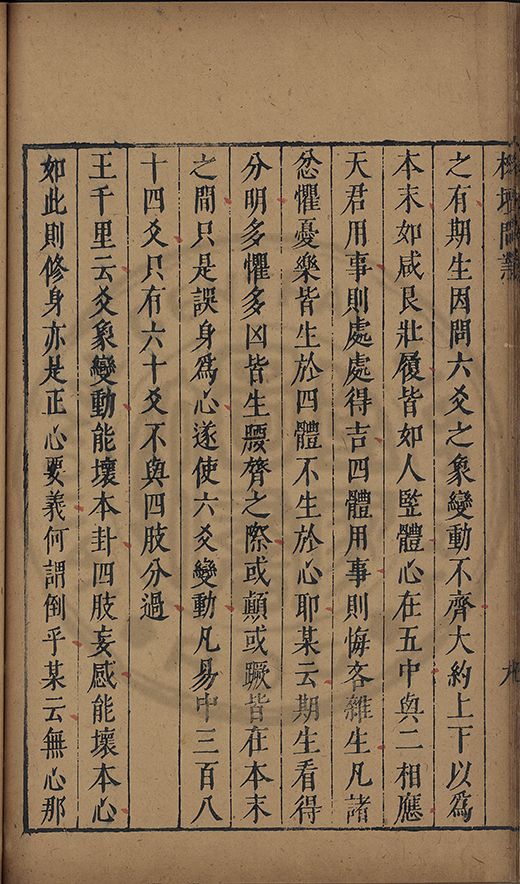 榕壇問業
九
之有期生因問六爻之象變動不齊大約上下以為
本末如咸艮壯履皆如人豎體心在五中與二相應
天君用事則處處得吉四體用事則悔吝雜生凡諸
忿懼憂樂皆生於四體不生於心耶某云期生看得
分明多懼多凶皆生腰膂之際或顛或蹶皆在本末
之間只是誤身為心遂使六爻變動凡易中三百八
十四爻只有六十爻不與四肢分過
王千里云爻象變動能壞本卦四肢妄感能壞本心
如此則修身亦是正心要義何謂倒乎某云無心那